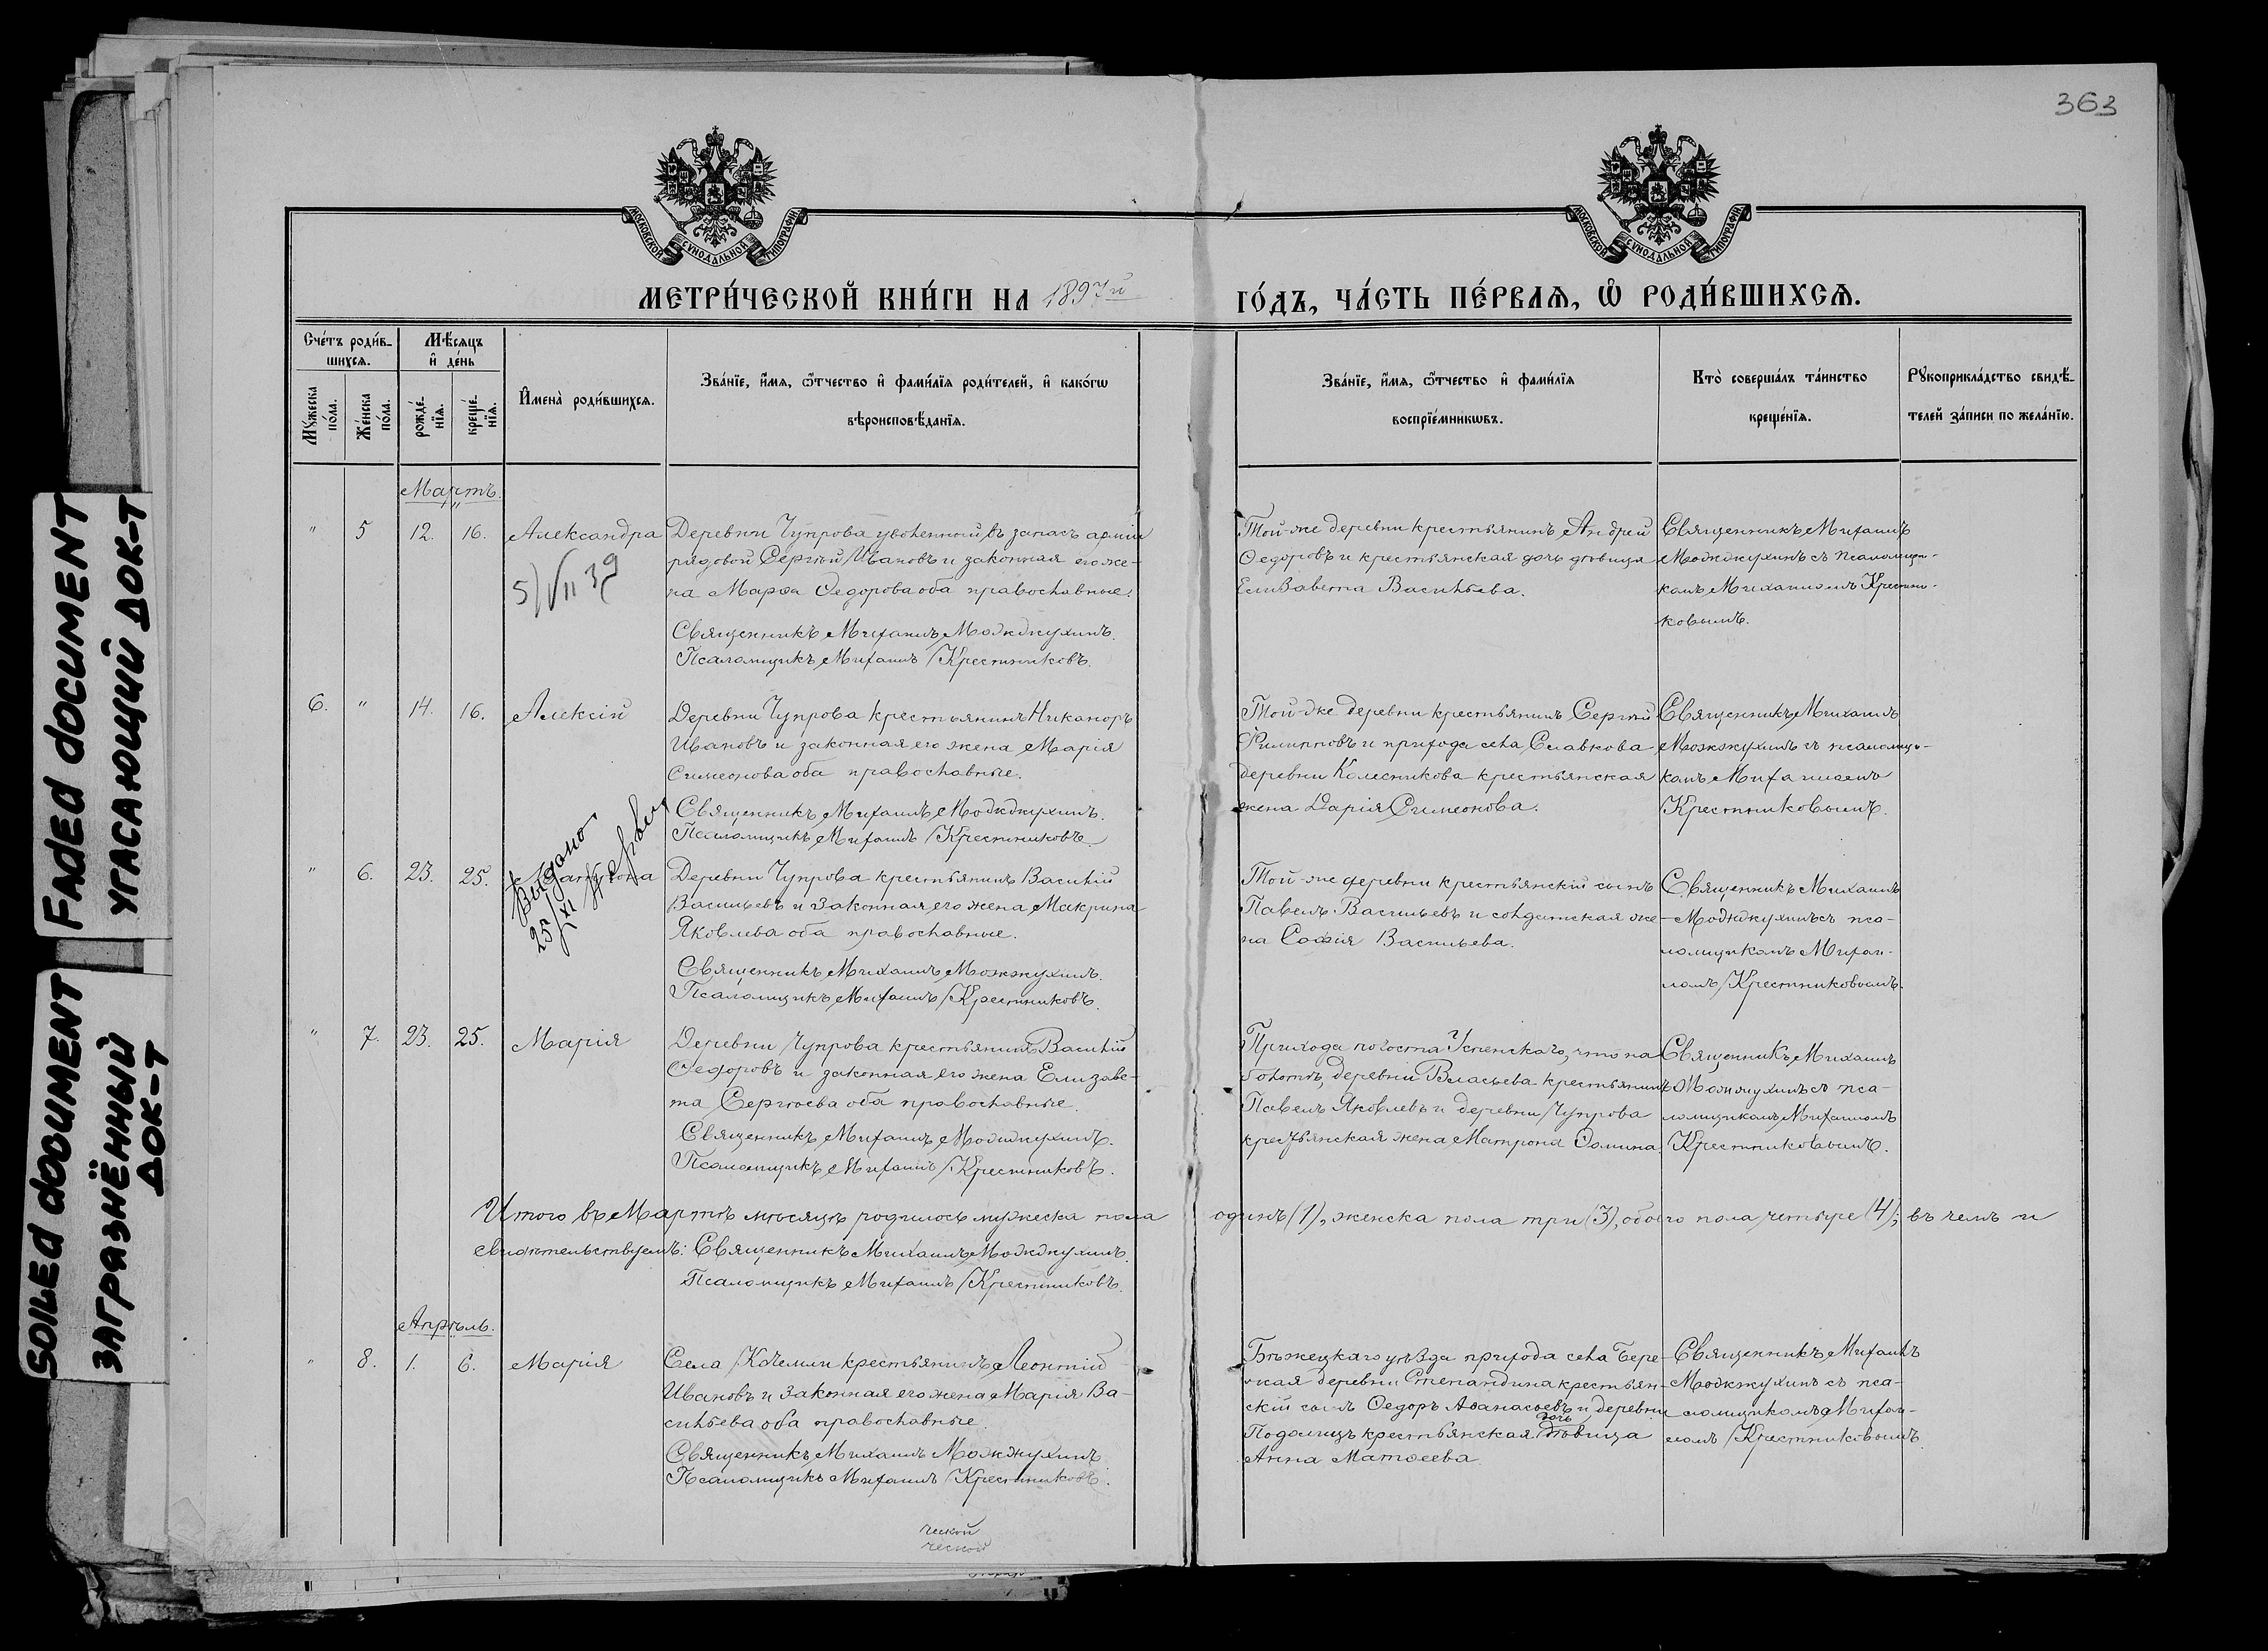 363
МОСКОВСКОЙ СѴНОДАЛЬНОЙ ТИПОГРАФІИ
МОСКОВСКОЙ СѴНОДАЛЬНОЙ ТИПОГРАФІИ
МЕТРИ́ЧЕСКОЙ КНИ́ГИ НА 1897й ГО́ДЪ, ЧА́СТЬ ПЕ́РВАЯ, Ѡ РОДИ́ВШИХСЯ.
Сче́тъ роди́в-
шихся.
Мѣ́сяцъ
и҆ де́нь
Му́жеска по́ла.
Же́нска по́ла.
рожде́-
нїя.
креще́-
нїя.
И҆мена̀ роди́вшихся.
Зва́нїе, и҆́мя, ѻ҆́тчество и҆ фами́лїя роди́телей, и҆ како́гѡ
вѣроисповѣ́данїя.
Зва́нїе, и҆́мя, ѻ҆́тчество и҆ фами́лїя
воспрїе́мникѡвъ.
Кто̀ соверша́лъ та́инство
креще́нїя.
Рꙋкоприкла́дство свидѣ́-
телей за́писи по жела́нїю.
Мартъ.
" 5 12. 16. Александра
Деревни Чупрова уволенный въ запасъ арміи
рядовой Сергѣй Ивановъ и законная его же-
на Марѳа Ѳедорова оба православные.
Священникъ МихаилъМожжухинъ.
Псаломщикъ Михаилъ Крестниковъ.
5/VII 39
Той-же деревни крестьянинъ Андрей
Ѳедоровъ и крестьянская дочь дѣвица
Елизавета Васильева.
Священникъ Михаилъ
Можжухинъ съ псаломщи-
комъ Михаиломъ Крестни-
ковымъ.
6. " 14. 16. Алексій
Деревни Чупрова крестьянинъ Никаноръ
Ивановъ и законная его жена Марія
Симеонова оба православные.
Священникъ Михаилъ Можжухинъ.
Псаломщикъ Михаилъ Крестниковъ.
Той-же деревни крестьянинъ Сергѣй
Филипповъ и прихода села Славкова
деревни Колесникова крестьянская
жена Дарія Симеонова.
Священникъ Михаилъ
Можжухинъ съ псаломщи-
комъ Михаиломъ
Крестниковымъ.
Выдано
25/XI
" 6. 23. 25. Матрона
Деревни Чупрова крестьянинъ Василій
Васильевъ и законная его жена Макрина
Яковлева оба православные.
Священникъ Михаилъ Можжухинъ.
Псаломщикъ Михаилъ Крестниковъ.
Той-же деревни крестьянскій сынъ
Павелъ Васильевъ и солдатская же-
на Софія Васильева.
Священникъ Михаилъ
Можжухинъ съ пса-
ломщикомъ Михаи-
ломъ Крестниковымъ.
" 7. 23. 25. Марія
Деревни Чупрова крестьянинъ Василій
Ѳедоровъ и законная его жена Елизаве-
та Сергѣева оба православные.
Священникъ Михаилъ Можжухинъ.
Псаломщикъ Михаилъ Крестниковъ.
Прихода погоста Успенскаго, что на
болотѣ, деревни Власьева крестьянинъ
Павелъ Яковлевъ и деревни Чупрова
крестьянская жена Матрона Ѳомина.
Священникъ Михаилъ
Можжухинъ съ пса-
ломщикомъ Михаиломъ
Крестниковымъ.
Итого въ Мартѣ мѣсяцѣ родилось мужеска пола одинъ (1), женска пола три (3), обоего пола четыре (4); въ чемъ и
свидѣтельствуемъ: Священникъ Михаилъ Можжухинъ.
Псаломщикъ Михаилъ Крестниковъ.
Апрѣль.
" 8. 1. 6. Марія
Села Кочемли крестьянинъ Леонтій
Ивановъ и законная его жена Марія Ва-
сильева оба православные.
Священникъ Михаилъ Можжухинъ.
Псаломщикъ Михаилъ Крестниковъ.
Бѣжецкаго уѣзда прихода села Бере-
деревни Степандина крестьян-
скій сынъ Ѳедоръ Аѳанасьевъ и деревни
Подолецъ крестьянская дочь дѣвица
Анна Матѳеева.
Священникъ Михаилъ
Можжухинъ съ пса-
ломщикомъ Михаи-
ломъ Крестниковымъ.
ческой
ческой
FADED DOCUMENT
УГАСАЮЩИЙ ДОК-Т
SOILED DOCUMENT
ЗАГРЯЗНЁННЫЙ
ДОК-Т